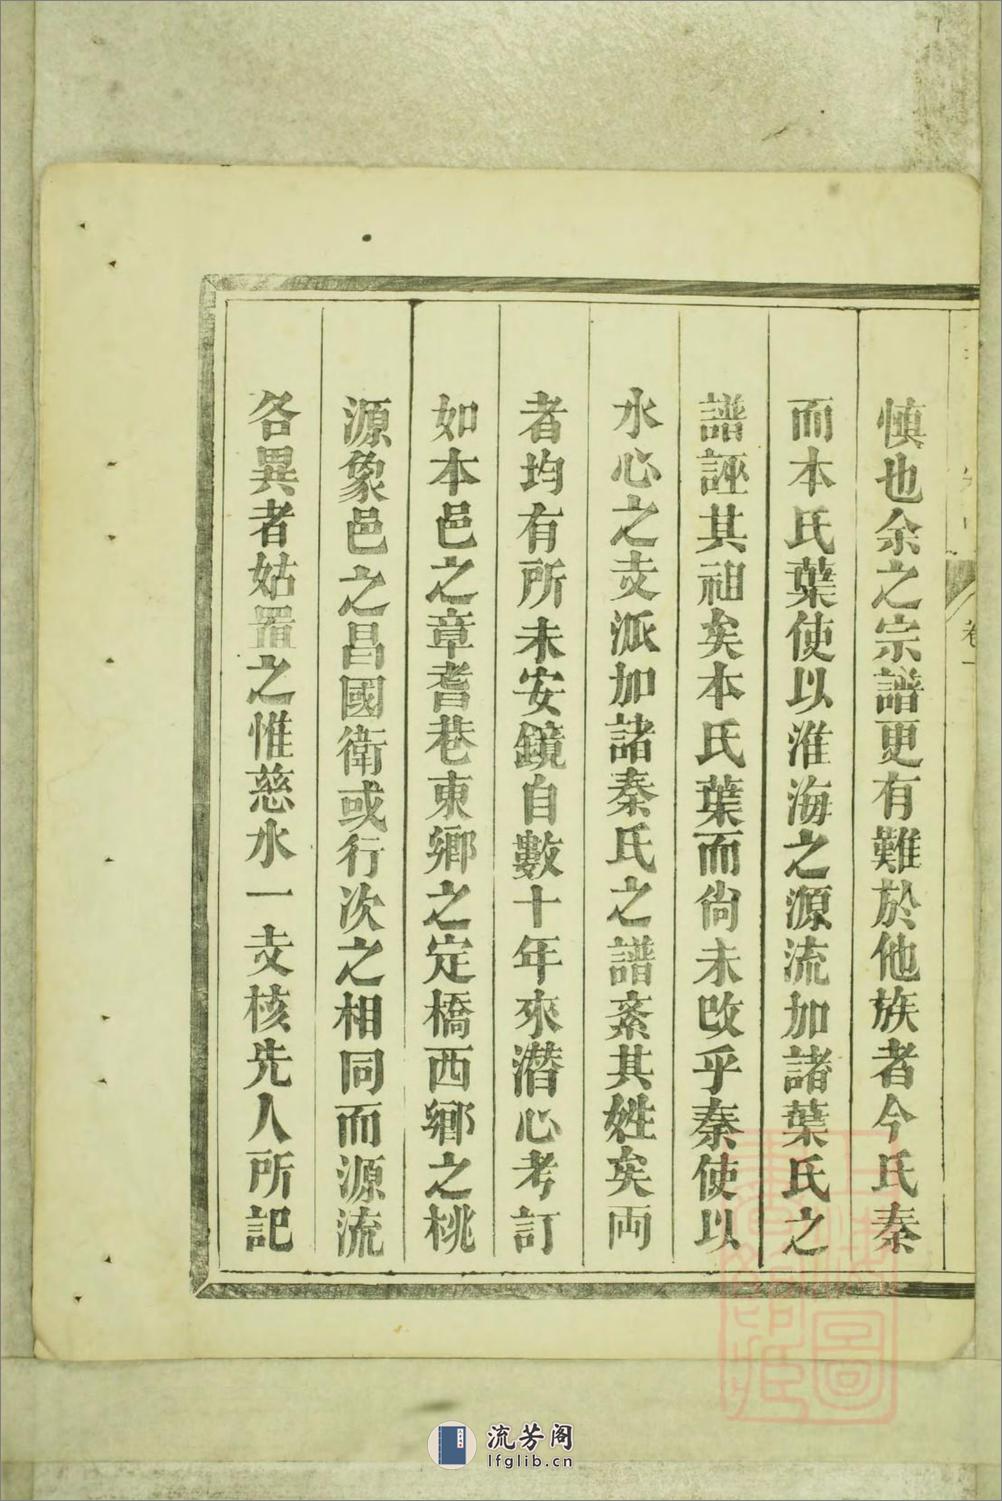 慎也余之宗譜更有難於他族者今氏秦
而本氏葉使以淮海之源流加諸葉氏之
譜誣其祖矣本氏葉而尙未改乎秦使以
水心之支派加諸秦氏之譜紊其姓矣両
者均有所未安鏡自數十年來潛心考訂
如本邑之章耆巷東鄉之定橋西鄉之桃
源象邑之昌國衛或行次之相同而源流
各異者姑置之惟慈水一支核先人所記
卷一
流芳阁
lfglib.cn